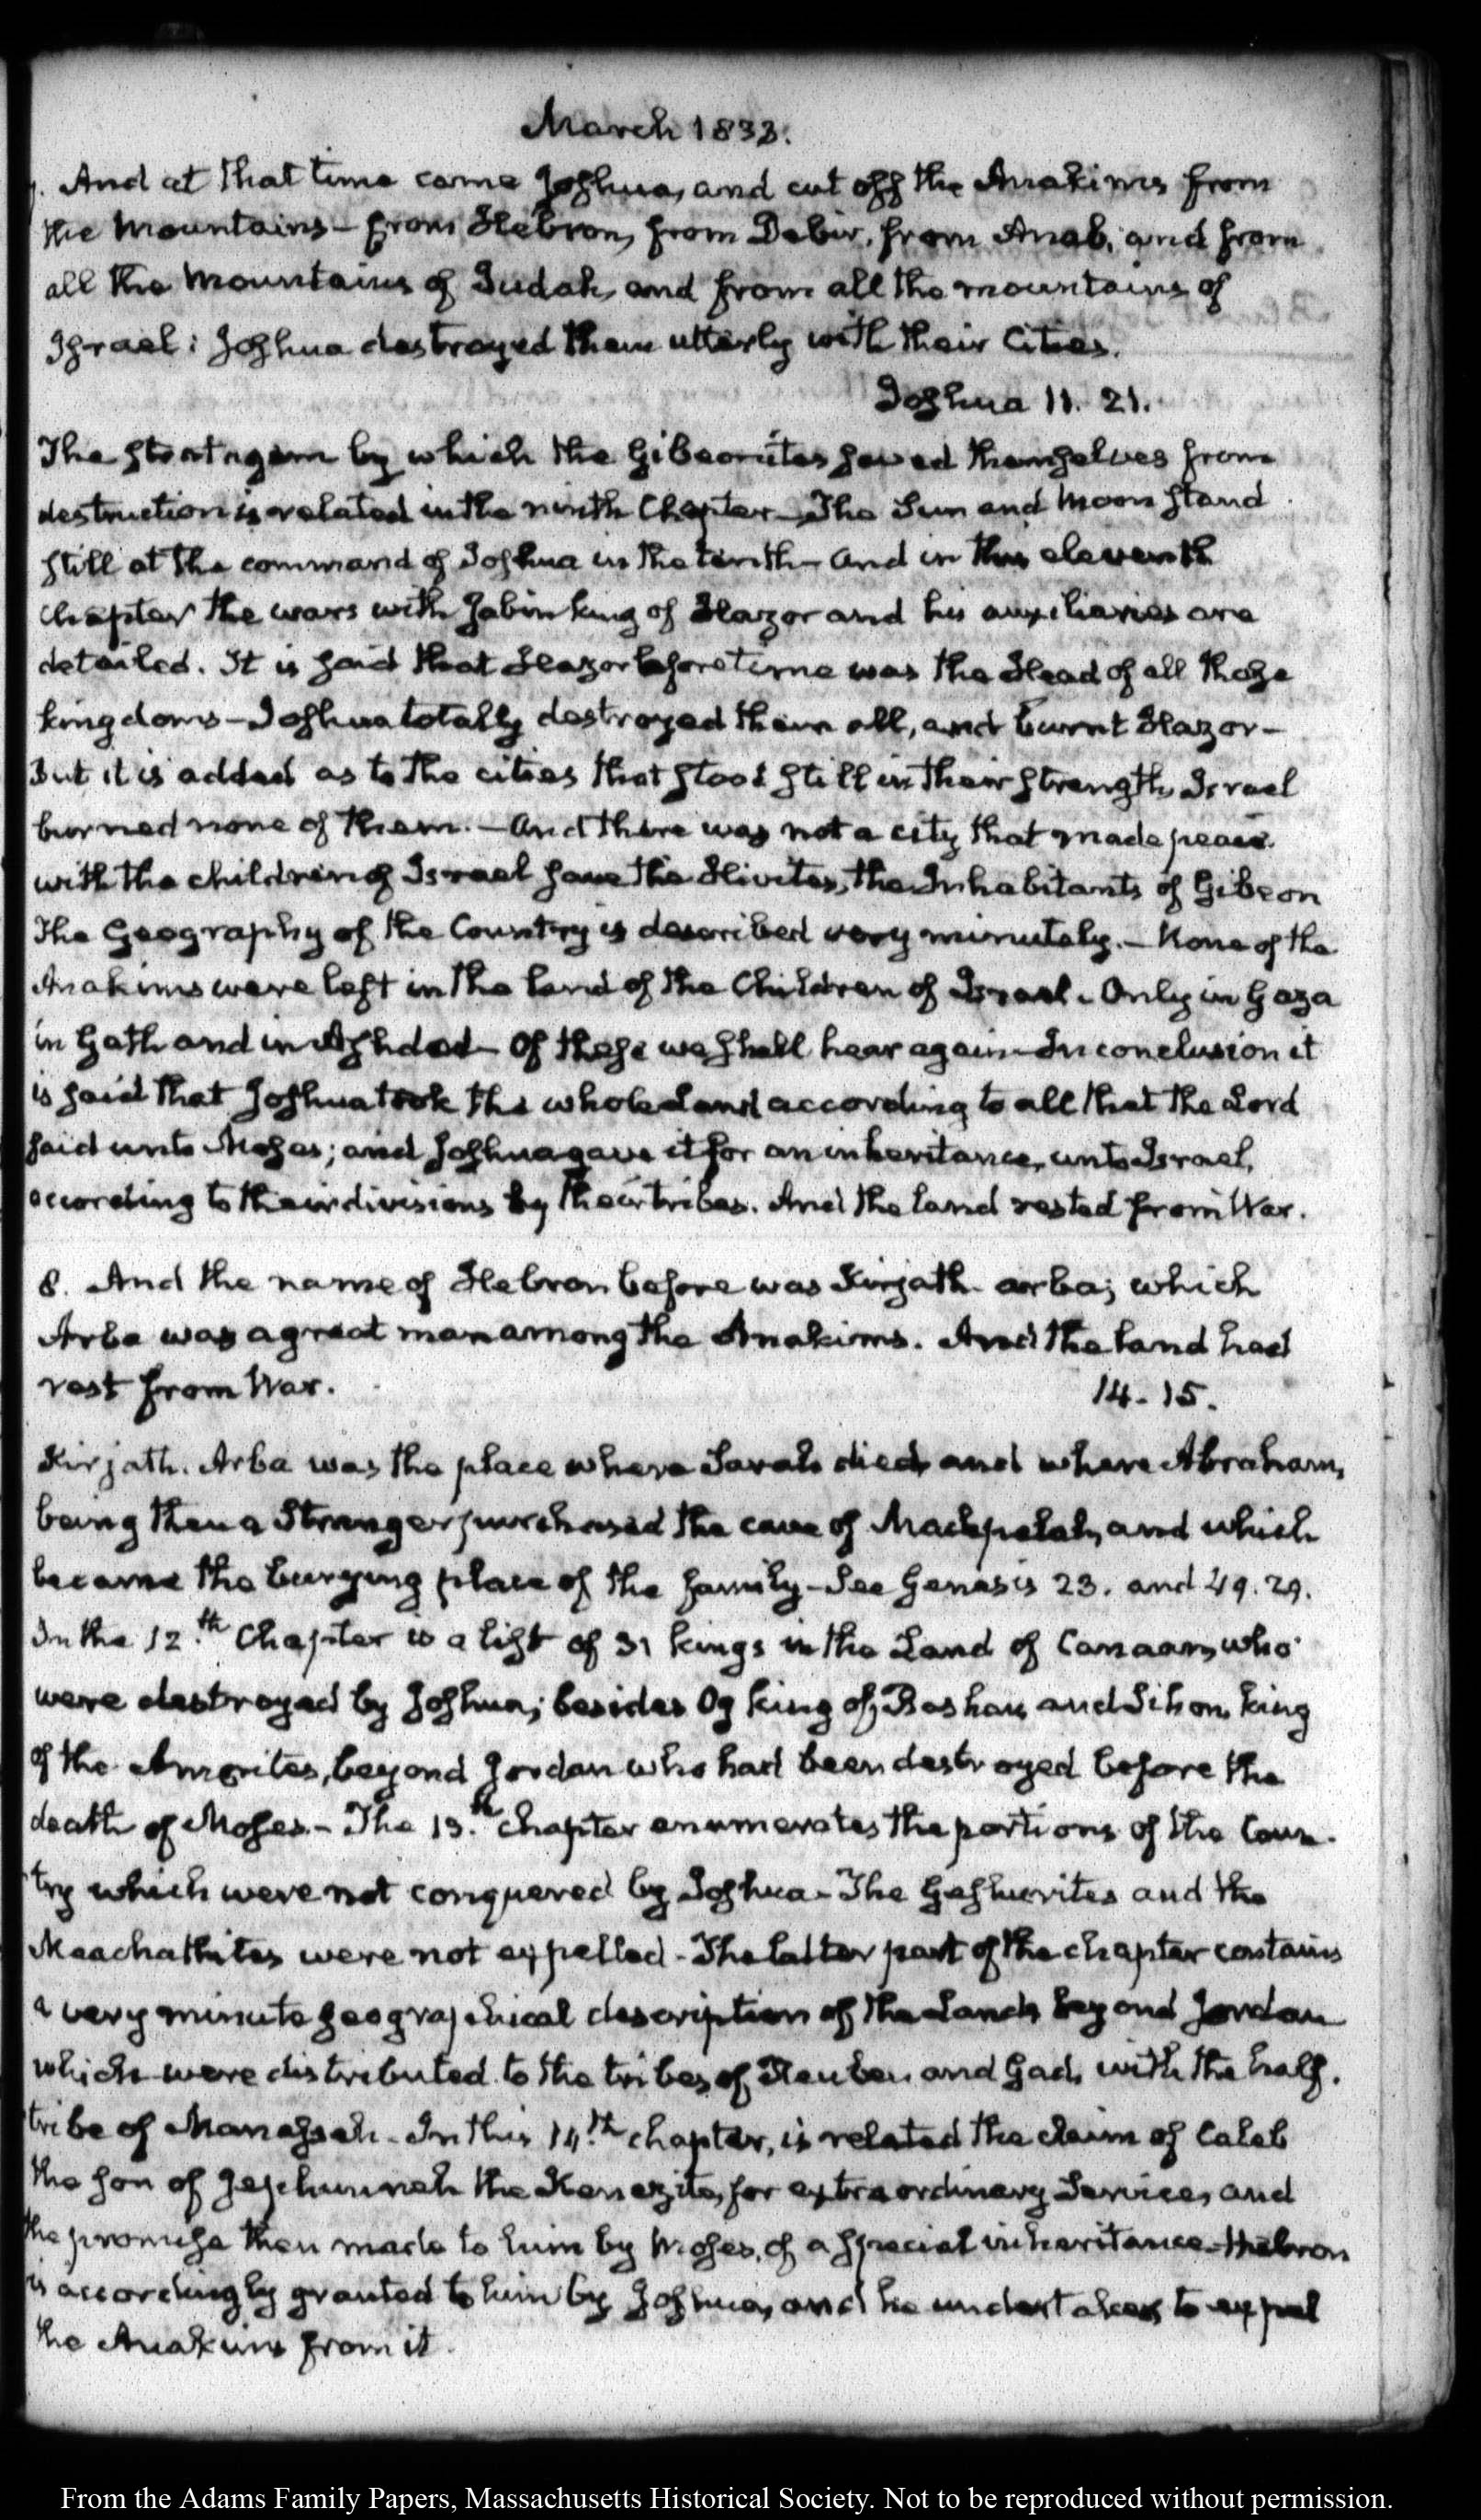 March 1833.
7. And at that time came Joshua, and cut off the Anakims from
the Mountains – from Hebron, from Debir, from Anab, and from
all the Mountains of Judah, and from all the mountains of
Israel: Joshua destroyed them utterly with their Cities.
Joshua 11. 21.
The stratagem by which the Gibeonites saved themselves from
destruction is related in the ninth Chapter – The Sun and Moon stand
still at the command of Joshua in the tenth – and in this eleventh
chapter the wars with Jabin king of Hazor and his auxiliaries are
detailed. It is said that Hazor beforetime was the Head of all those
kingdoms – Joshua totally destroyed them all, and burnt Hazor –
But it is added as to the cities that stood still in their strength, Israel
burned none of them. – And there was not a city that made peace
with the children of Israel save the Hivites, the Inhabitants of Gibeon
The Geography of the Country is described very minutely. – None of the
Anakims were left in the land of the Children of Israel. Only in Gaza
in Gath and in Ashdod – Of these we shall hear again – In conclusion it
is said that Joshua took the whole Land according to all that the Lord
said unto Moses; and Joshua gave it for an inheritance, unto Israel,
according to their divisions by their tribes. And the land rested from War.
8. And the name of Hebron before was Kirjath-arba; which
Arba was a great man among the Anakims. And the land had
rest from War.
14. 15.
Kirjath. Arba was the place where Sarah died and where Abraham,
being then a Stranger purchased the cave of Machpelah, and which
became the burying place of the family – See Genesis 23. and 49. 29.
In the 12.th Chapter is a list of 31 kings in the Land of Canaan, who
were destroyed by Joshua; besides Og king of Bashan and Sihon king
of the Amorites, beyond Jordan who had been destroyed before the
death of Moses. – The 13.th chapter enumerates the portions of the Coun-
try which were not conquered by Joshua – The Geshurites and the
Maachathites were not expelled – The latter part of the chapter contains
a very minute geographical description of the Lands beyond Jordan
which were distributed to the tribes of Reuben and Gad, with the half.
tribe of Manasseh – In this 14.th chapter, is related the claim of Caleb
the son of Jephunneh the Kenezite, for extraordinary Services, and
the promise then made to him by Moses, of a special inheritance – Hebron
is accordingly granted to him by Joshua, and he undertakes to expel
the Anakims from it.
From the Adams Family Papers, Massachusetts Historical Society. Not to be reproduced without permission.